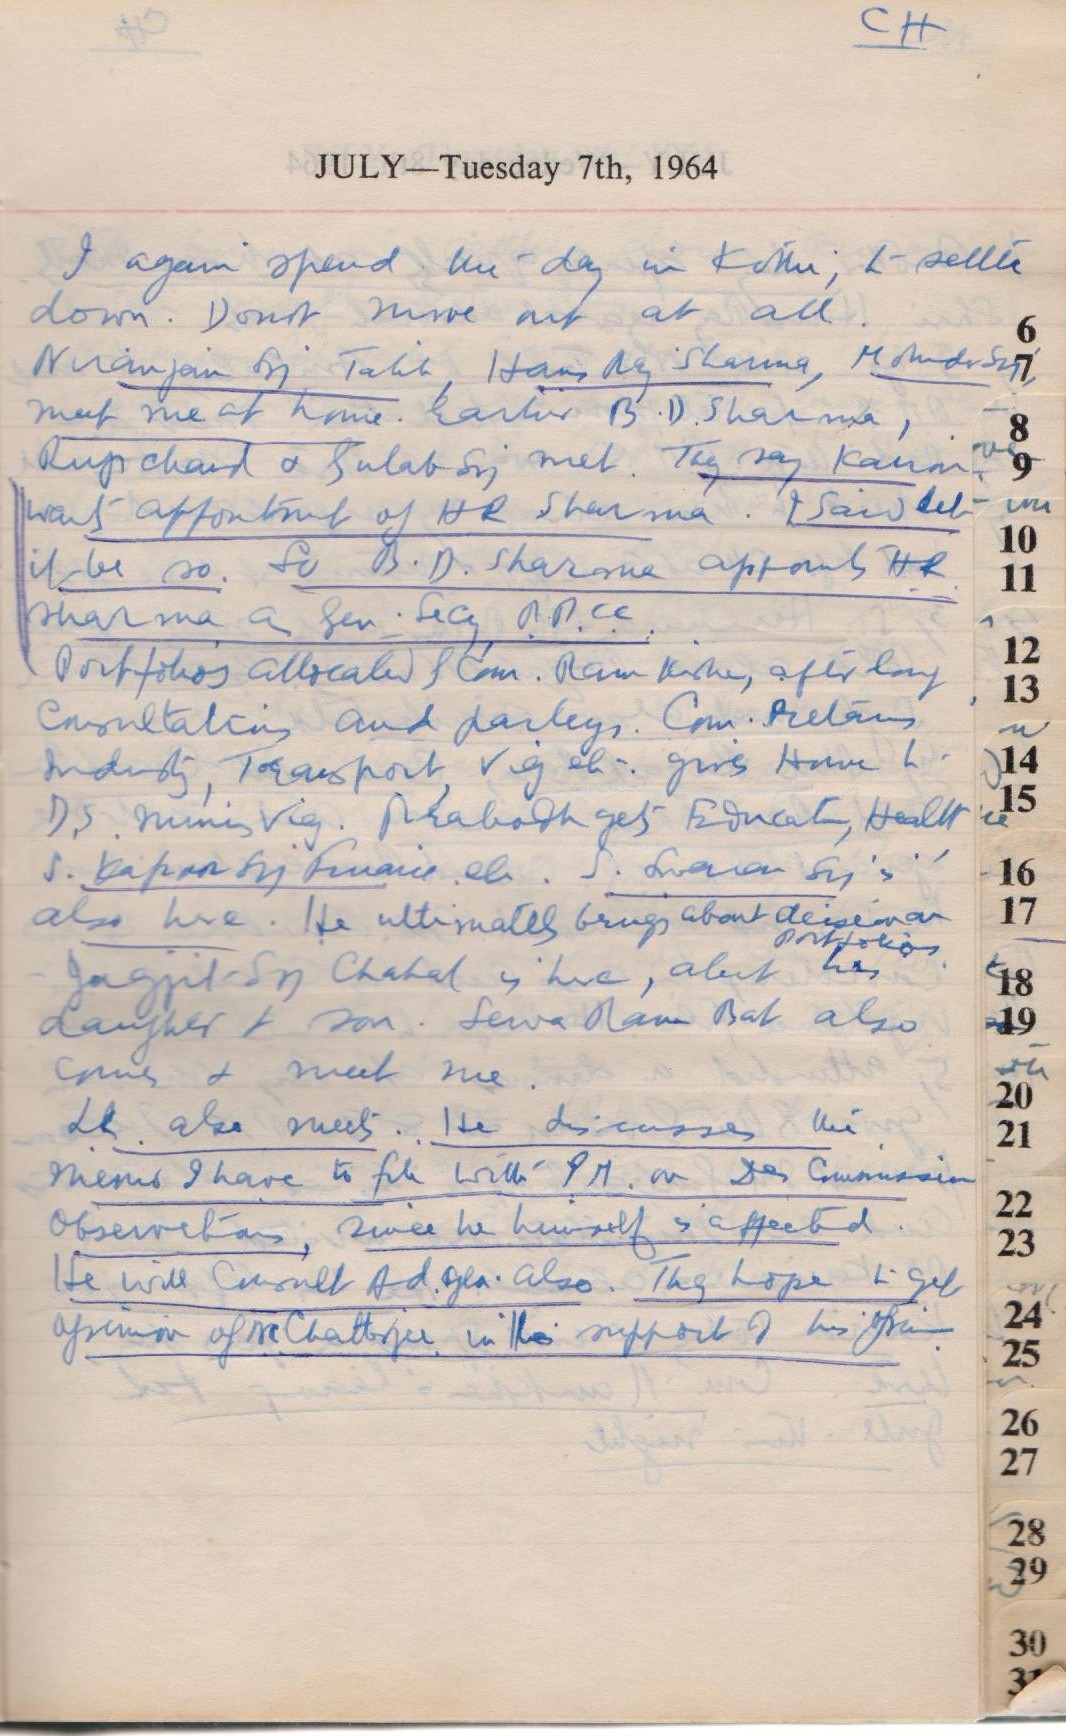 CH
JULY—Tuesday 7th, 1964
I again spend the day in Kothi, to settle
down. Donot move out at all.
Niranjan Sg Talib, Hans Raj Sharma, Mohinder Sg,
meet me at home. Earlier B.D. Sharma,
Rup chand & Gulab Sg met. They say Kairon
wants appointment of HR Sharma. I said let
it be so. So B.D. Sharma appoints HR
Sharma as Gen. Secy P.P.C.C.
Portfolios allocated by Com. Ram Kishen, after long
Consultations and parleys. Com. Retains
Industry, Transport, Vig etc. gives Home to
D.S. minus Vig. Prabodh gets Education, Health
S. Kapoor Sg Finance etc. S. Swaran Sg is
also here. He ultimately brings about decision on
Portfolios
Jagjit Sg Chahal is here, about his
daughter & son. Sewa Ram Bat also
comes & meet me.
also meets. He discusses the
memo I have to file with PM. on Das Commission
Observations, since he himself is affected.
He will Consult Ad. Gen. also. They hope to get
opinion of NC Chatterjee in the support of his opinion
6
7
8
9
10
11
12
13
14
15
16
17
18
19
20
21
22
23
24
25
26
27
28
29
30
31